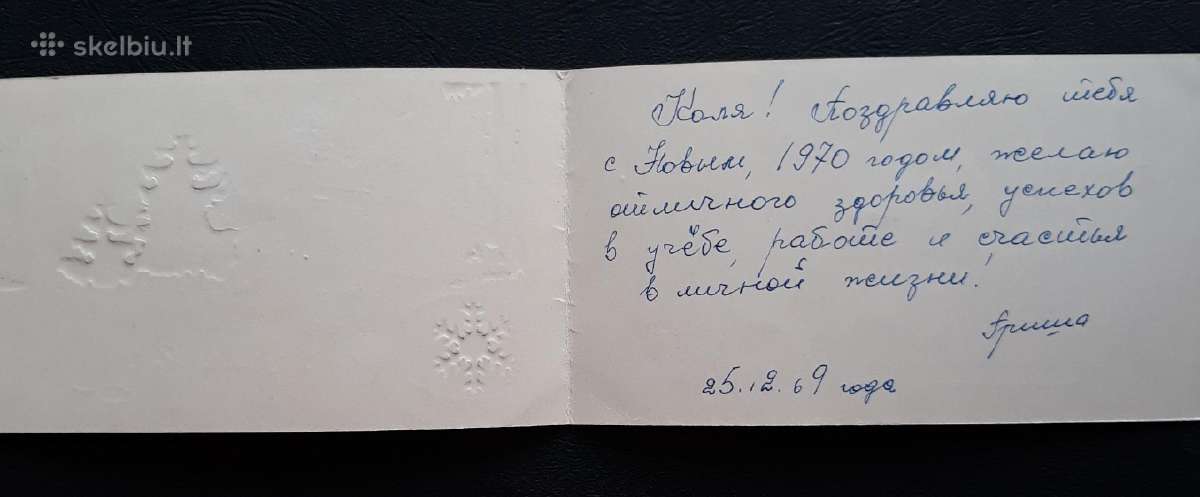 skelbiu.lt
Коля! Поздравляю тебя
с Новым, 1970 годом, желаю
отличного здоровья, успехов
в учёбе, работе и счастья
в личной жизни!
Гриша
25.12.69 года